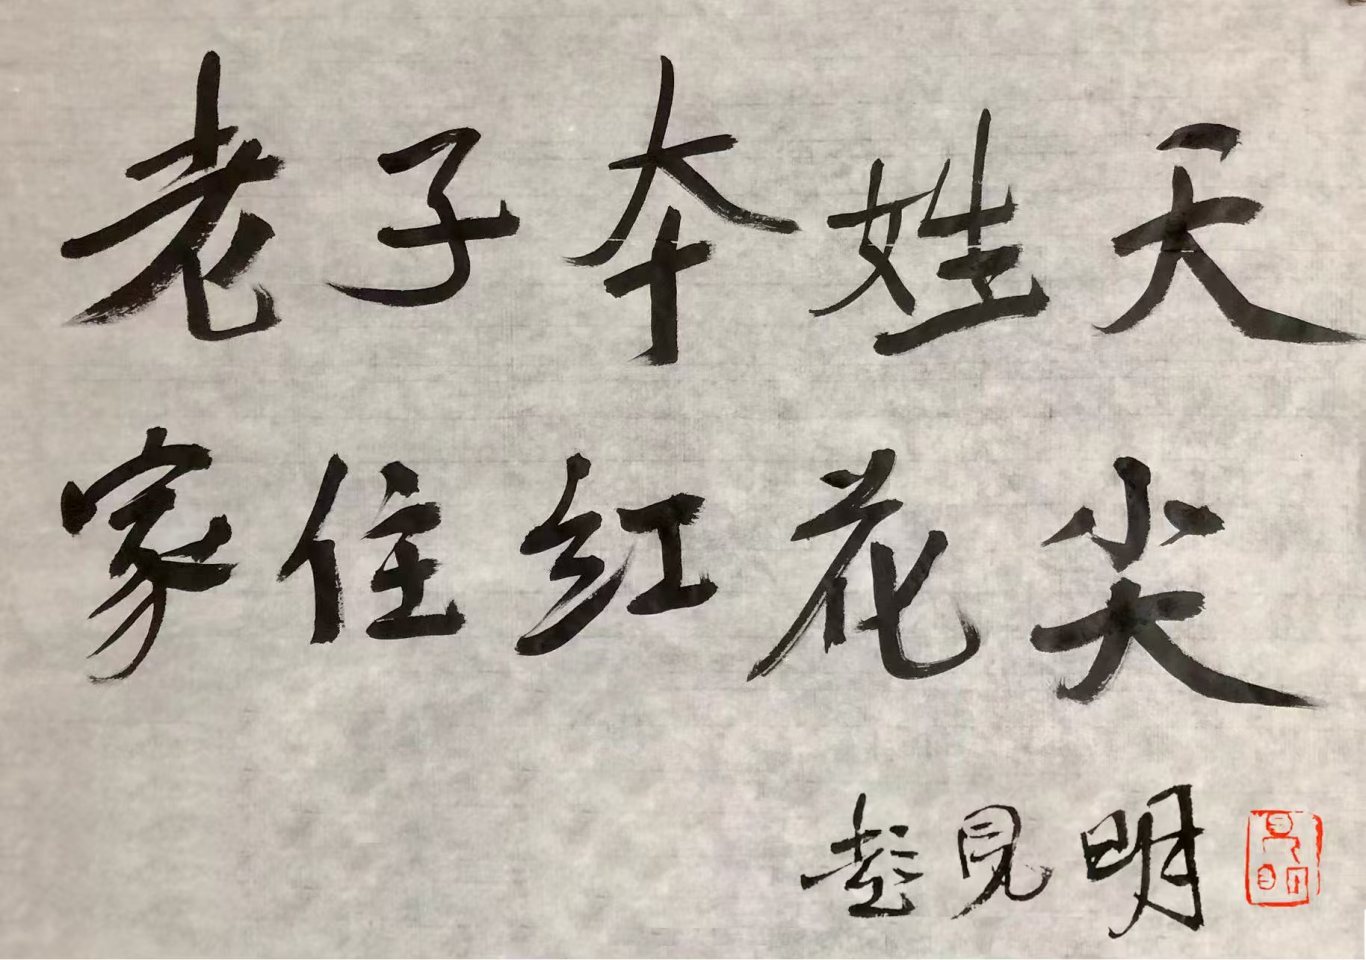 老子本姓天
家住红花尖
彭见明
见明